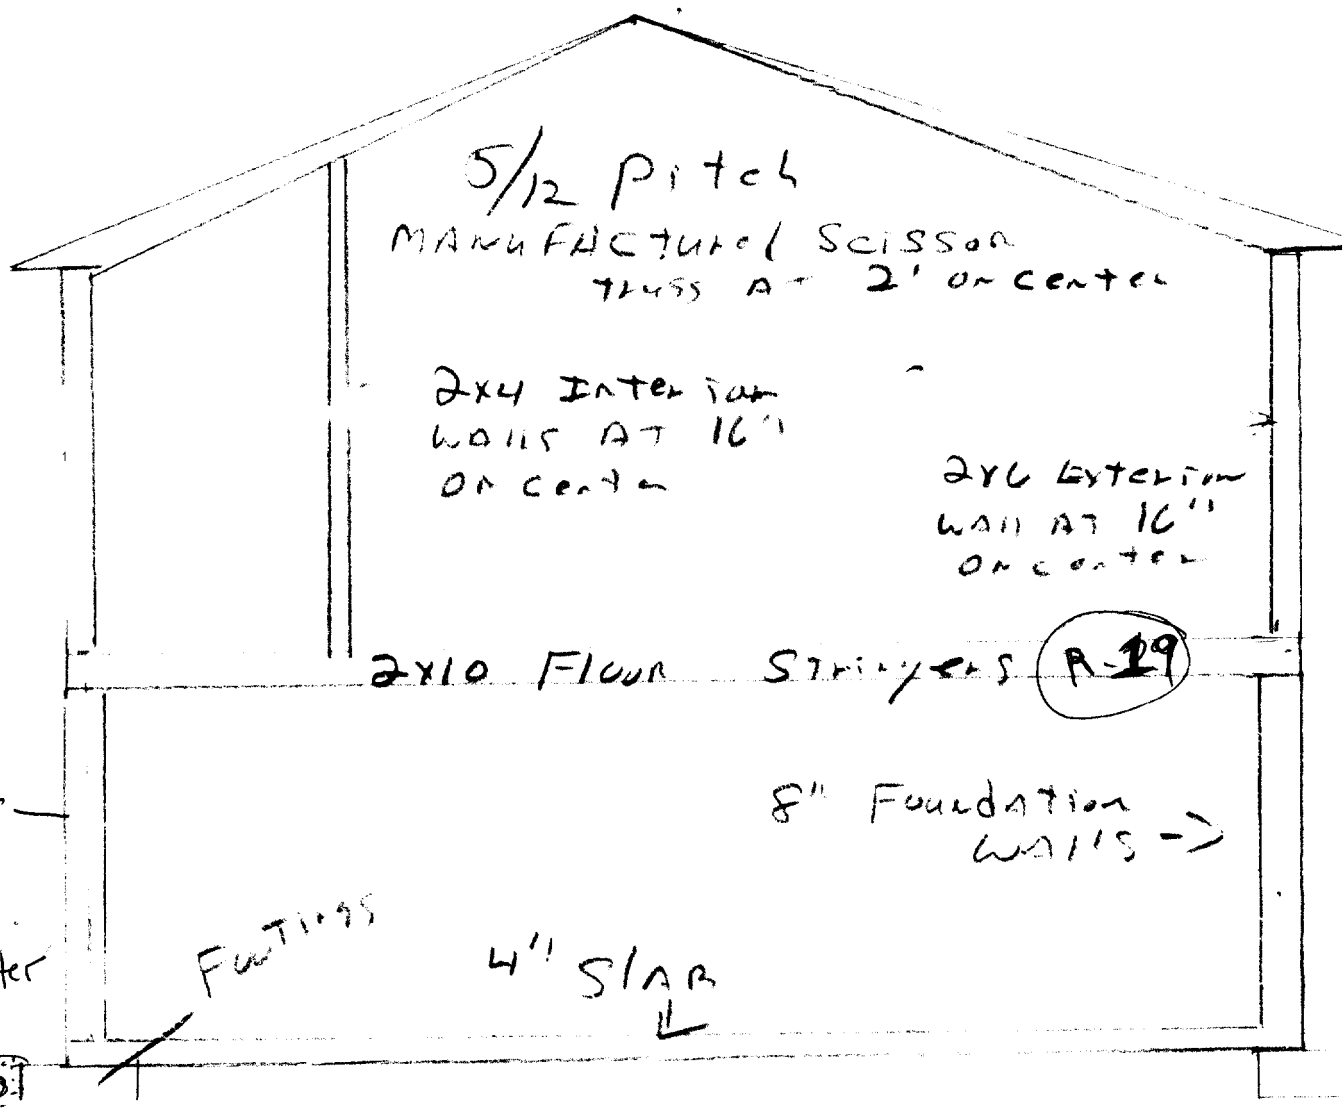 5/12 Pitch
MANUFACtured Scissor
truss AT 2' on center
2x4 Interior
WAllS AT 16"
on center
2x6 Exterior
WAll AT 16"
on center
2x10 Floor Stringers R-19
8" Foundation
WAllS ->
Footings
4" SlAB